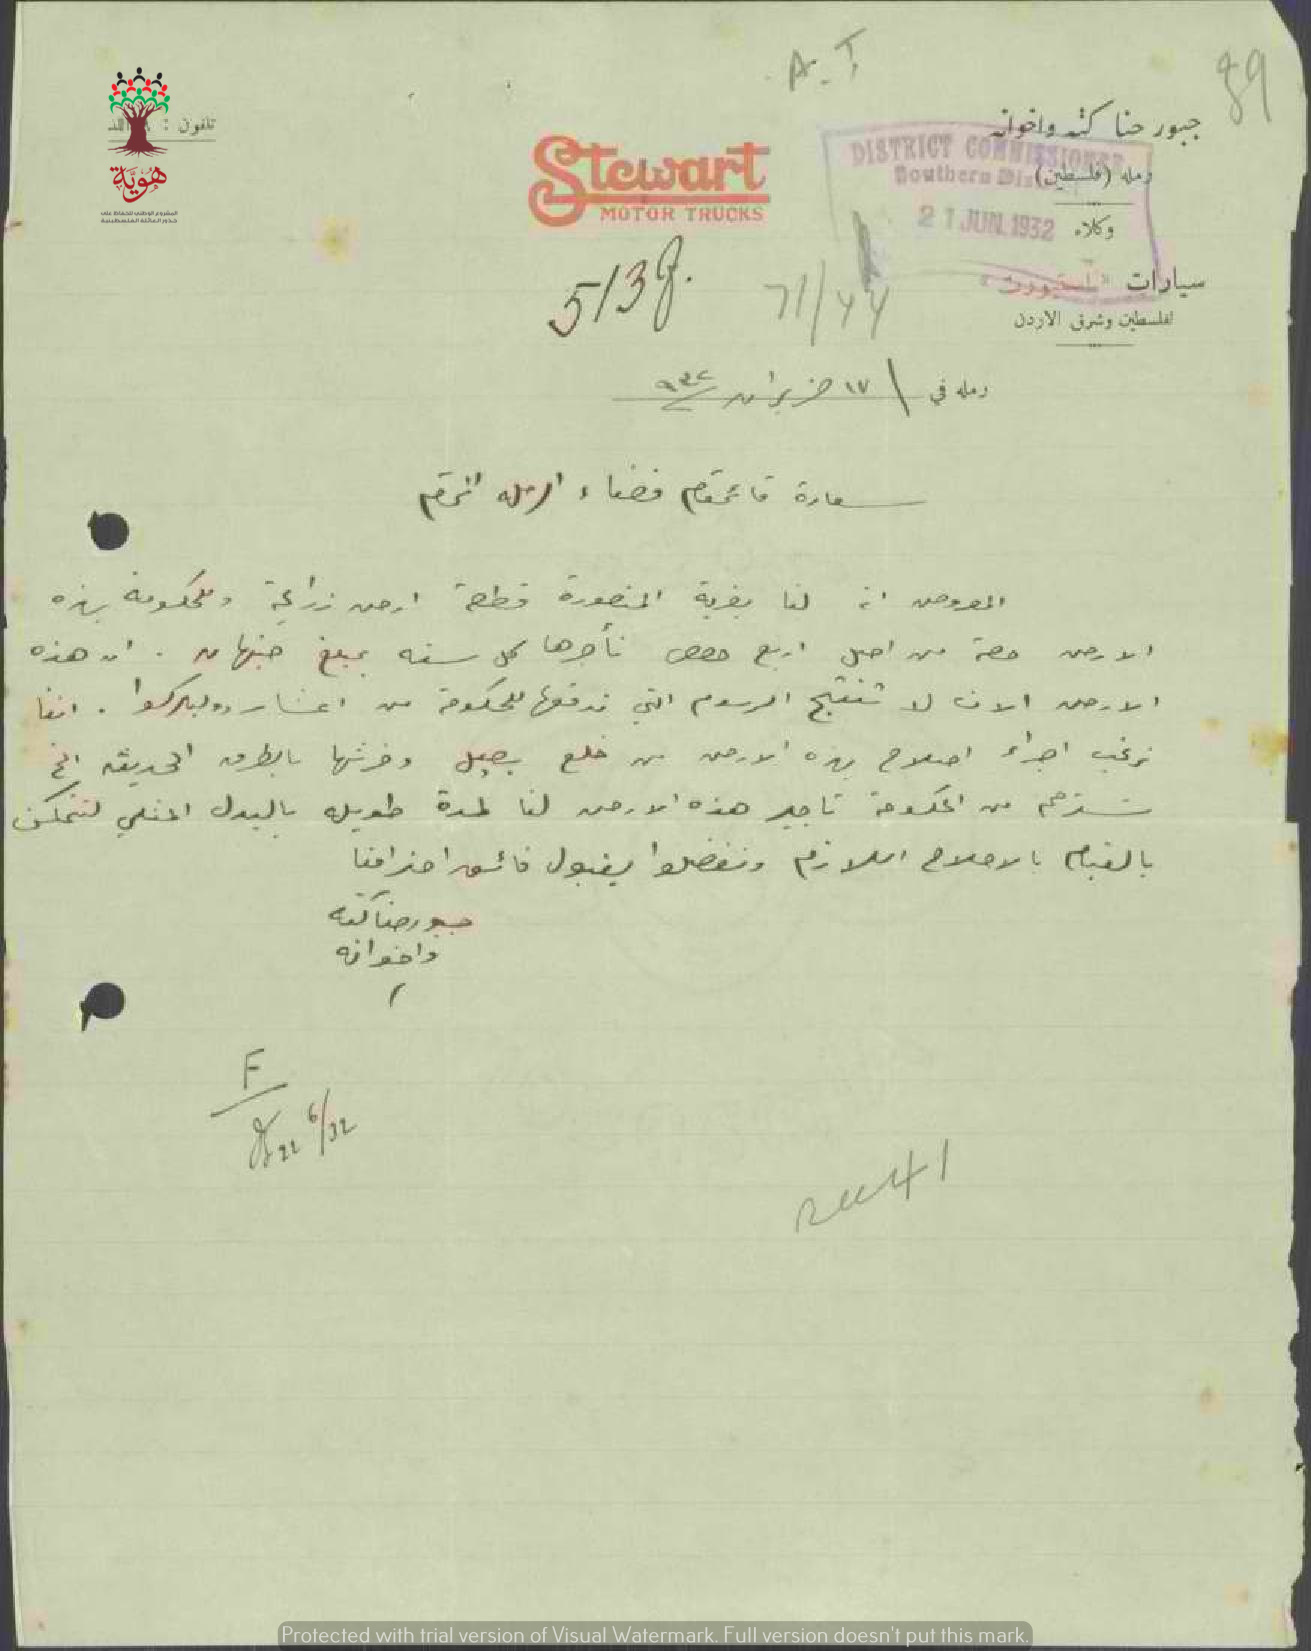 A. T.
89
تلفون : ٨ اللد
هوية
المشروع الوطني للحفاظ على
جذور العائلة الفلسطينية
Stewart
MOTOR TRUCKS
جبور حنا كته واخوانه
رمله (فلسطين)
وكلاء
سيارات "استيورت"
لفلسطين وشرق الاردن
DISTRICT COMMISSIONER
Southern Dis
21 JUN. 1932
513
71/44
رمله في ١٧ حزيران ٩٣٢
سعادة قائمقام قضاء الرمله المحترم
المعروض انه لنا بقرية المنصورة قطعة ارض زراعية وللحكومة بهذه
الارض حصة من اصل اربع حصص نأجرها كل سنه بمبلغ جنيهان . ان هذه
الارض الان لا تنتج الرسوم التي ندفعها للحكومة من اعشار وويركوا . اننا
نرغب اجراء اصلاح بهذه الارض من خلع بصيل وغرسها بالطرق الحديثه الخ
نسترحم من الحكومة تاجير هذه الارض لنا لمدة طويله بالبدل المثلي لنتمكن
بالقيام بالاصلاح اللازم وتفضلوا بقبول فائق احترامنا
جبور حنا كته
واخوانه
F
22/6/32
Protected with trial version of Visual Watermark. Full version doesn't put this mark.